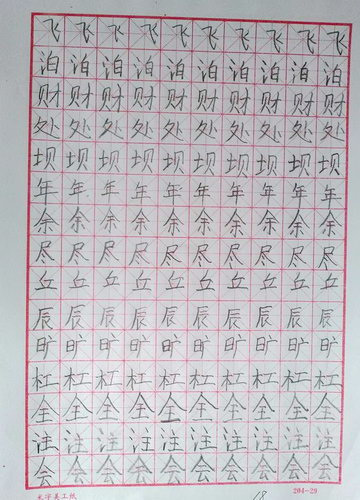 飞飞飞飞飞飞飞飞飞飞
泊泊泊泊泊泊泊泊泊泊
财财财财财财财财财财
处处处处处处处处处处
坝坝坝坝坝坝坝坝坝坝
年年年年年年年年年年
余余余余余余余余余余
尽尽尽尽尽尽尽尽尽尽
丘丘丘丘丘丘丘丘丘丘
辰辰辰辰辰辰辰辰辰辰
旷旷旷旷旷旷旷旷旷旷
杠杠杠杠杠杠杠杠杠杠
全全全全全全全全全全
注注注注注注注注注注
会会会会会会会会会会
米字美工纸 204-29